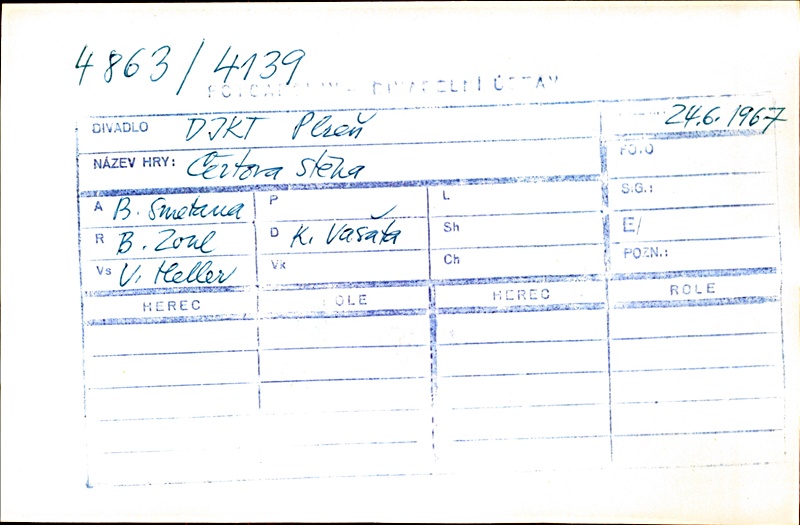 4863/4139
DIVADELNÍ ÚSTAV
DIVADLO DJKT Plzeň 24.6.1967
NÁZEV HRY: Čertova stěna FOTO
A B. Smetana P L S.G.:
R B. Zoul D K. Vašata Sh E/
Vs V. Heller Vk Ch POZN.:
HEREC ROLE HEREC ROLE